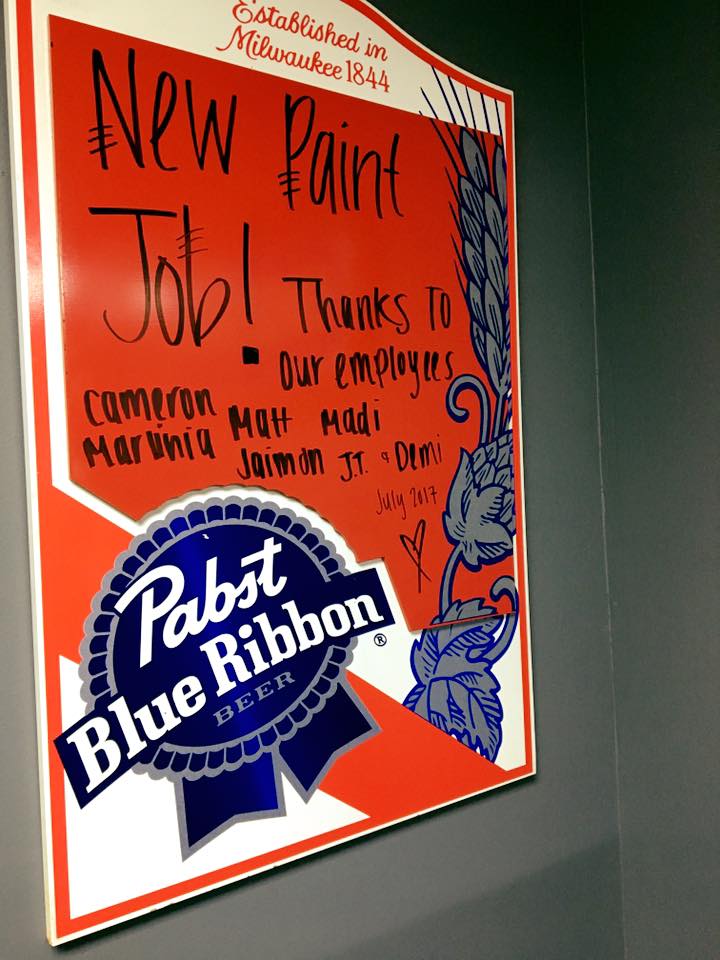 Established in
Milwaukee 1844
New Paint
Job! Thanks To
our employees
Cameron Matt Madi
Marunia Jaimon J.T. & Demi
July 2017
Pabst
Blue Ribbon ®
BEER